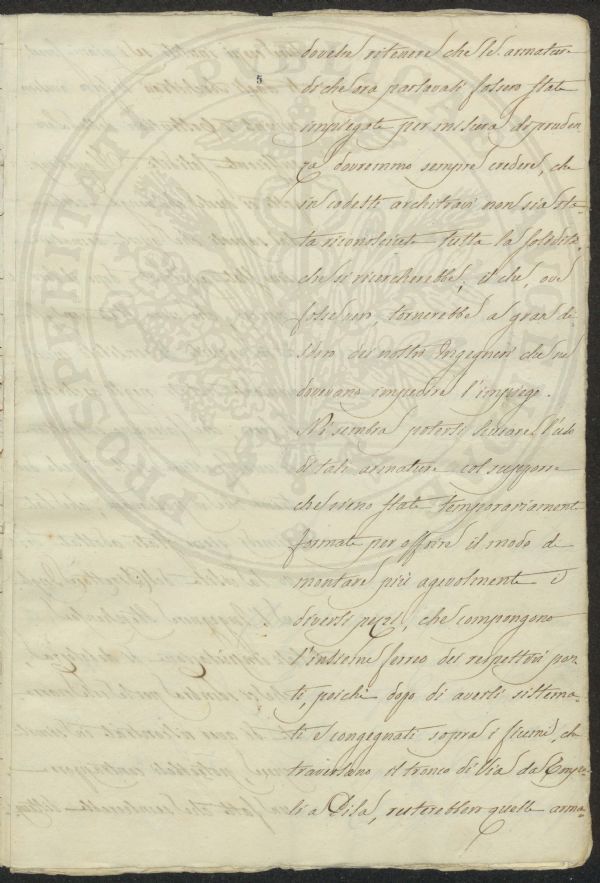 5
dovesse ritenere che le armature
di che ora parlavasi fossero state
impiegate per misura di pruden-
za dovremmo sempre credere, che
in codesti architravi non sia sta-
ta riconosciuta tutta la solidità
che si ricercherebbe, il che, ove
fosse vero, tornerebbe a gran di
sdoro dei nostri Ingegneri che ne
dovevano impedire l'impiego.
Mi sembra potersi scusare l'uso
di tali armature col supporre
che sieno state temporariamente
formate per offrire il modo di
montare più agevolmente i
diversi pezzi, che compongono
l'insieme ferreo dei respettivi pon-
ti, poichè dopo di averli sistema-
ti e congegnati sopra i fiumi, che
traversano il tronco di Via da Empo-
li a Pisa, resterebbero quelle arma-
PROSPERITATI PUBLICAE